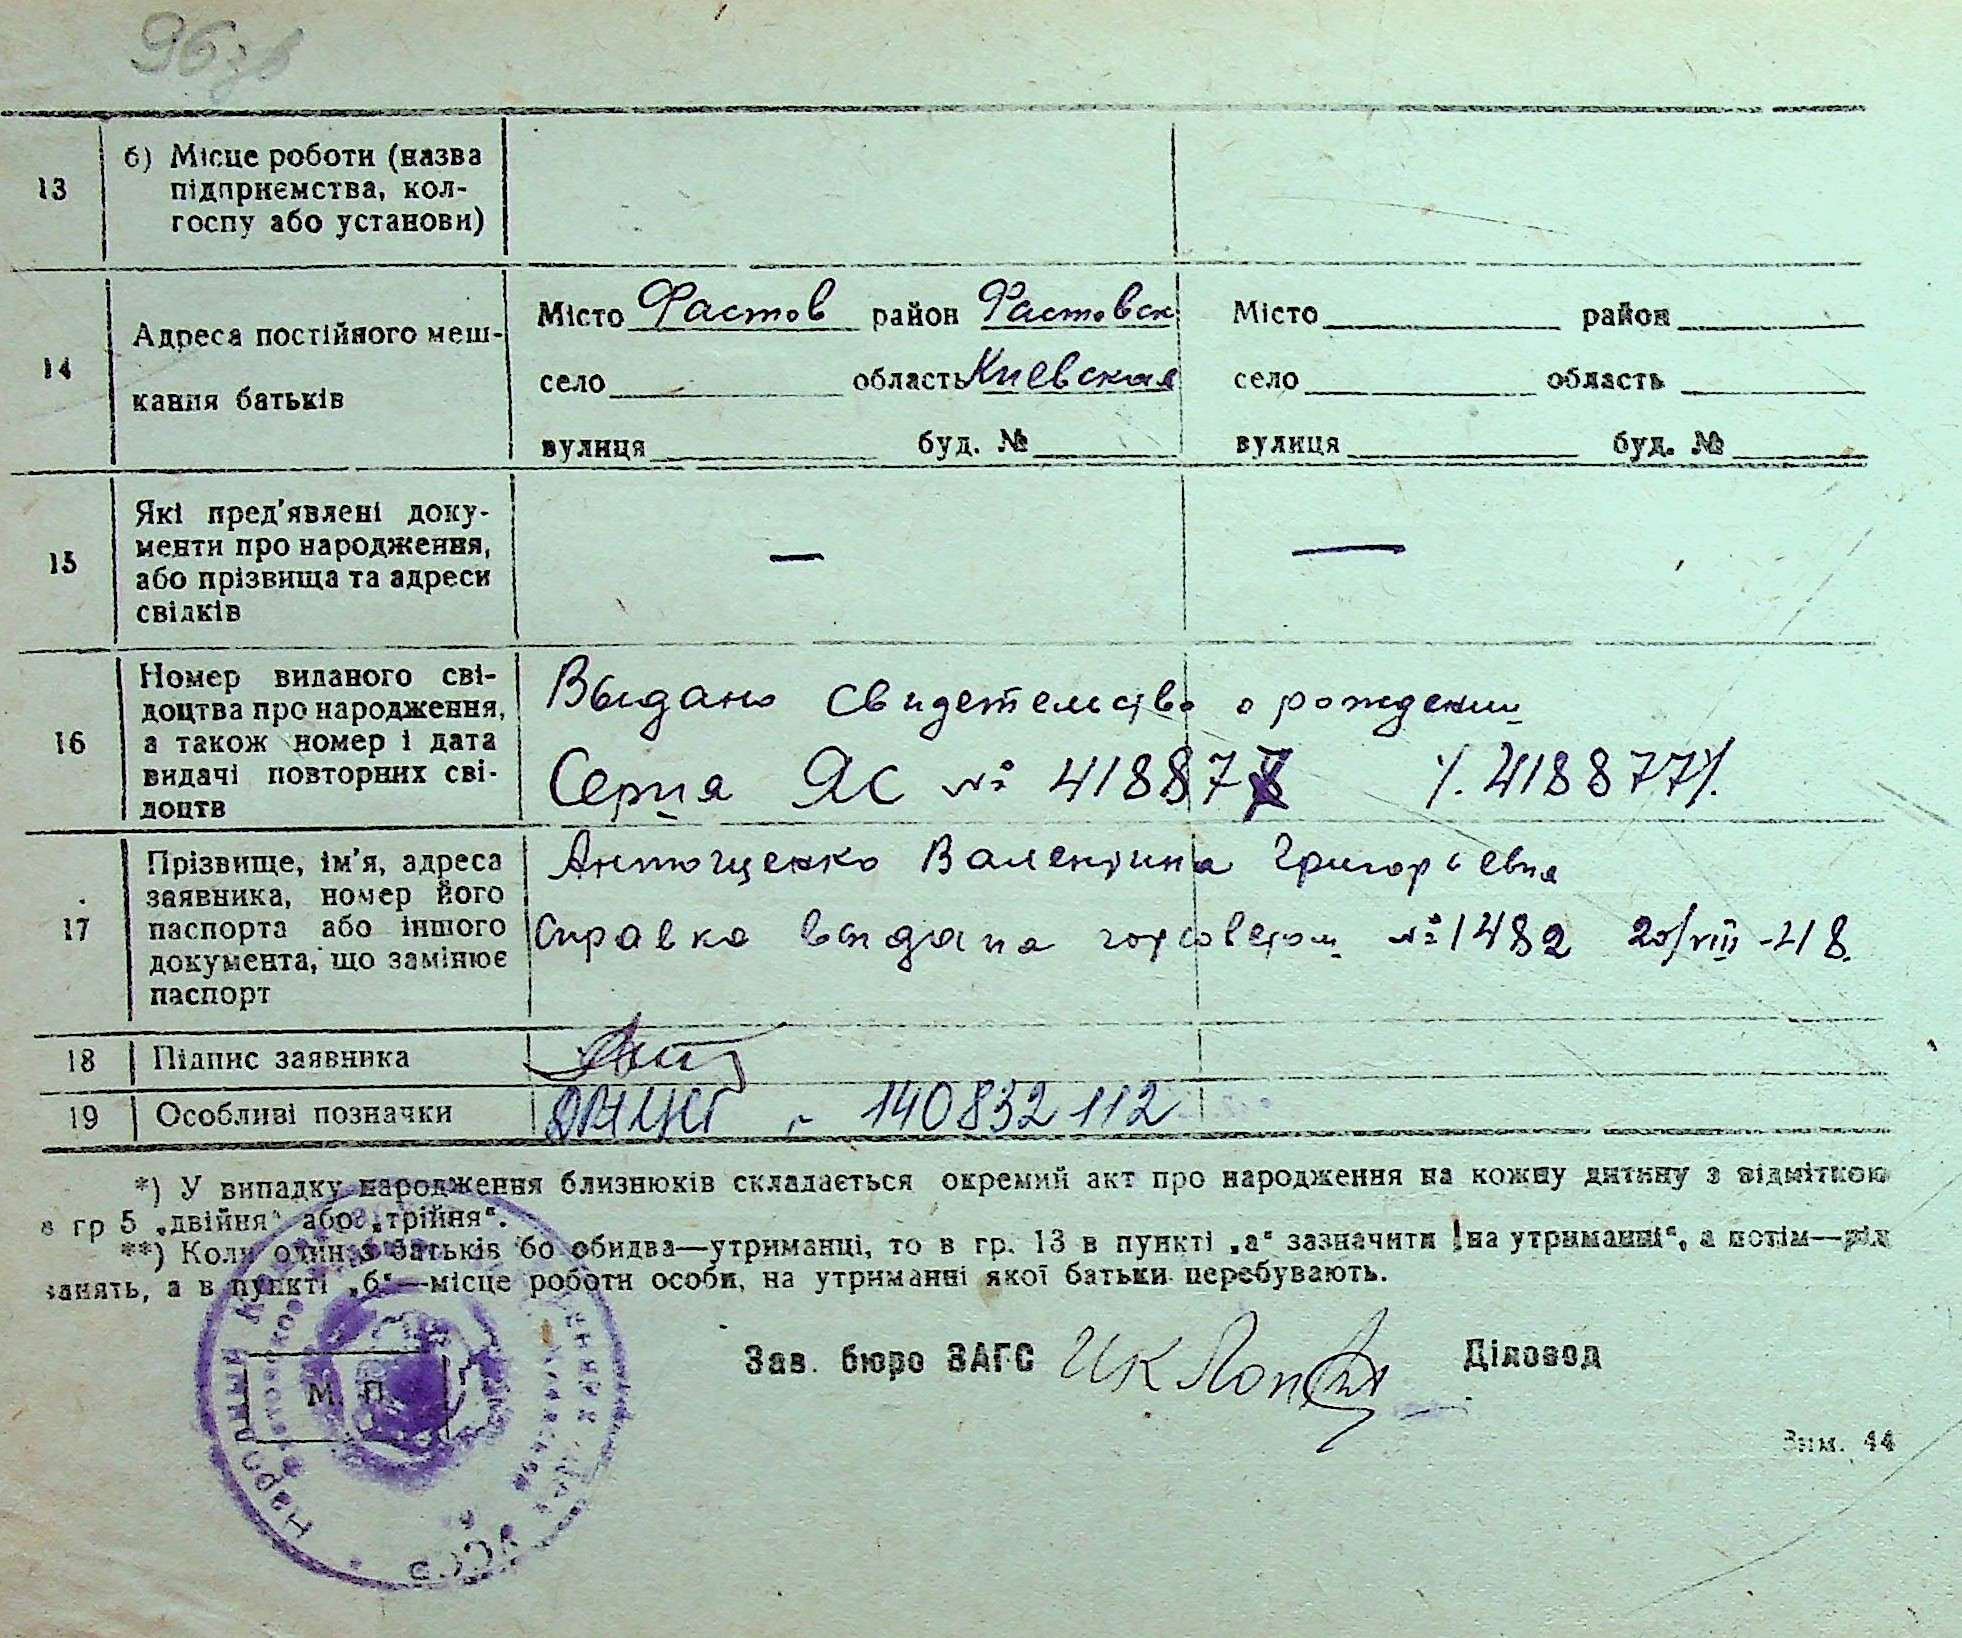 96зв
13
б) Місце роботи (назва
підприємства, кол-
госпу або установи)
14
Адреса постійного меш-
кання батьків
Місто Фастов район Фастовск
село область Киевская
вулиця буд. №
Місто район
село область
вулиця буд. №
15
Які пред'явлені доку-
менти про народження,
або прізвища та адреси
свідків
—
—
16
Номер виданого сві-
доцтва про народження,
а також номер і дата
видачі повторних сві-
доцтв
Выдано свидетельство о рождении
Серия ЯС № 418877 /. 418877/.
17
Прізвище, ім'я, адреса
заявника, номер його
паспорта або іншого
документа, що замінює
паспорт
Антощенко Валентина Григорьевна
Справка выдана горсоветом № 1482 20/VIII-48.
18 Підпис заявника
19 Особливі позначки
140832112
*) У випадку народження близнюків складається окремий акт про народження на кожну дитину з відміткою
в гр 5 „двійня“ або „трійня“.
**) Коли один з батьків бо обидва—утриманці, то в гр. 13 в пункті „а“ зазначити „на утриманні“, а потім—рід
занять, а в пункті „б“—місце роботи особи, на утриманні якої батьки перебувають.
М П
Народний
УССР
Зав. бюро ЗАГС
Діловод
Зим. 44